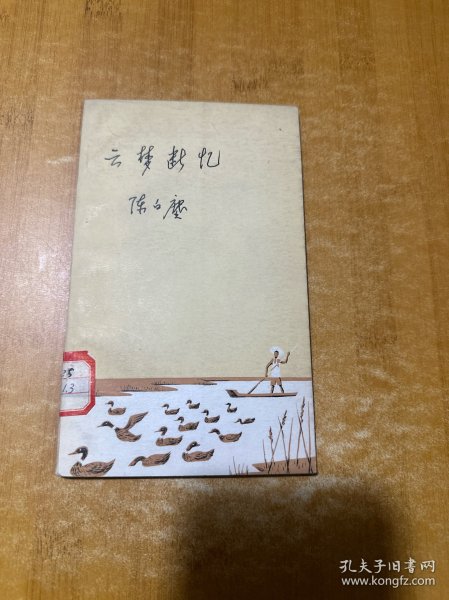 云梦断忆
陈白尘
25
13
孔夫子旧书网
www.kongfz.com